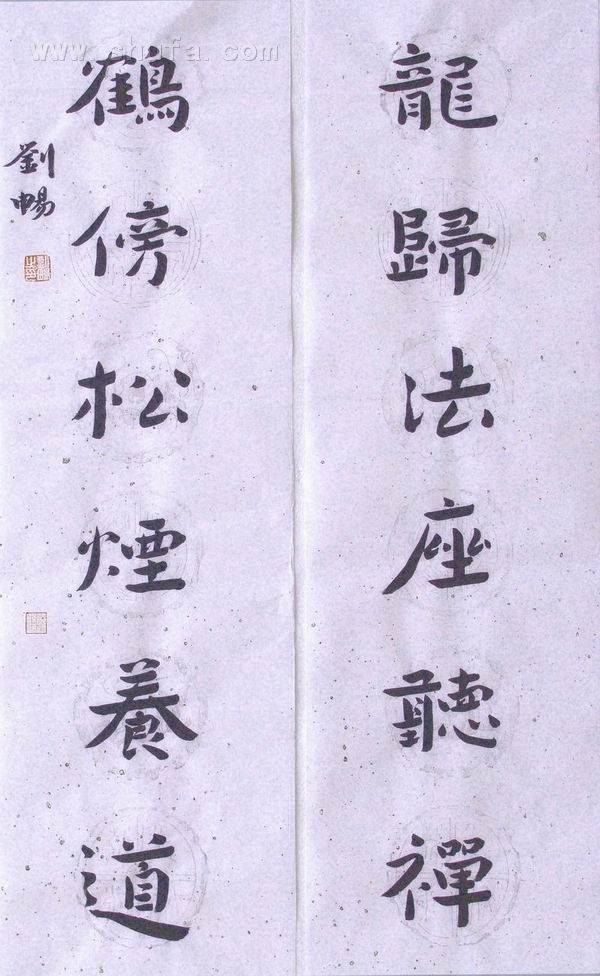 龍歸法座聽禪
鶴傍松煙養道
劉暢
www.shufa.com